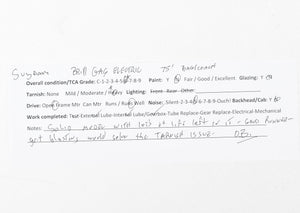 BRILL GAG ELECTRIC 75'
Overall condition/TCA Grade: C-1-2-3-4-5-6-7-8-9 Paint: Y Fair / Good / Excellent Glazing: Y
Tarnish: None Mild / Moderate / Heavy Lighting: Front Rear Other
Drive: Open Frame Mtr Can Mtr Runs / Runs Well Noise: Silent-2-3-4-5-6-7-8-9-Ouch! Backhead/Cab: Y
Work completed: Test-External Lube-Internal Lube/Gearbox-Tube Replace-Gear Replace-Electrical-Mechanical
Notes: model with lots of life left in it - Good Runner -
got would solve the TARNISH ISSUE